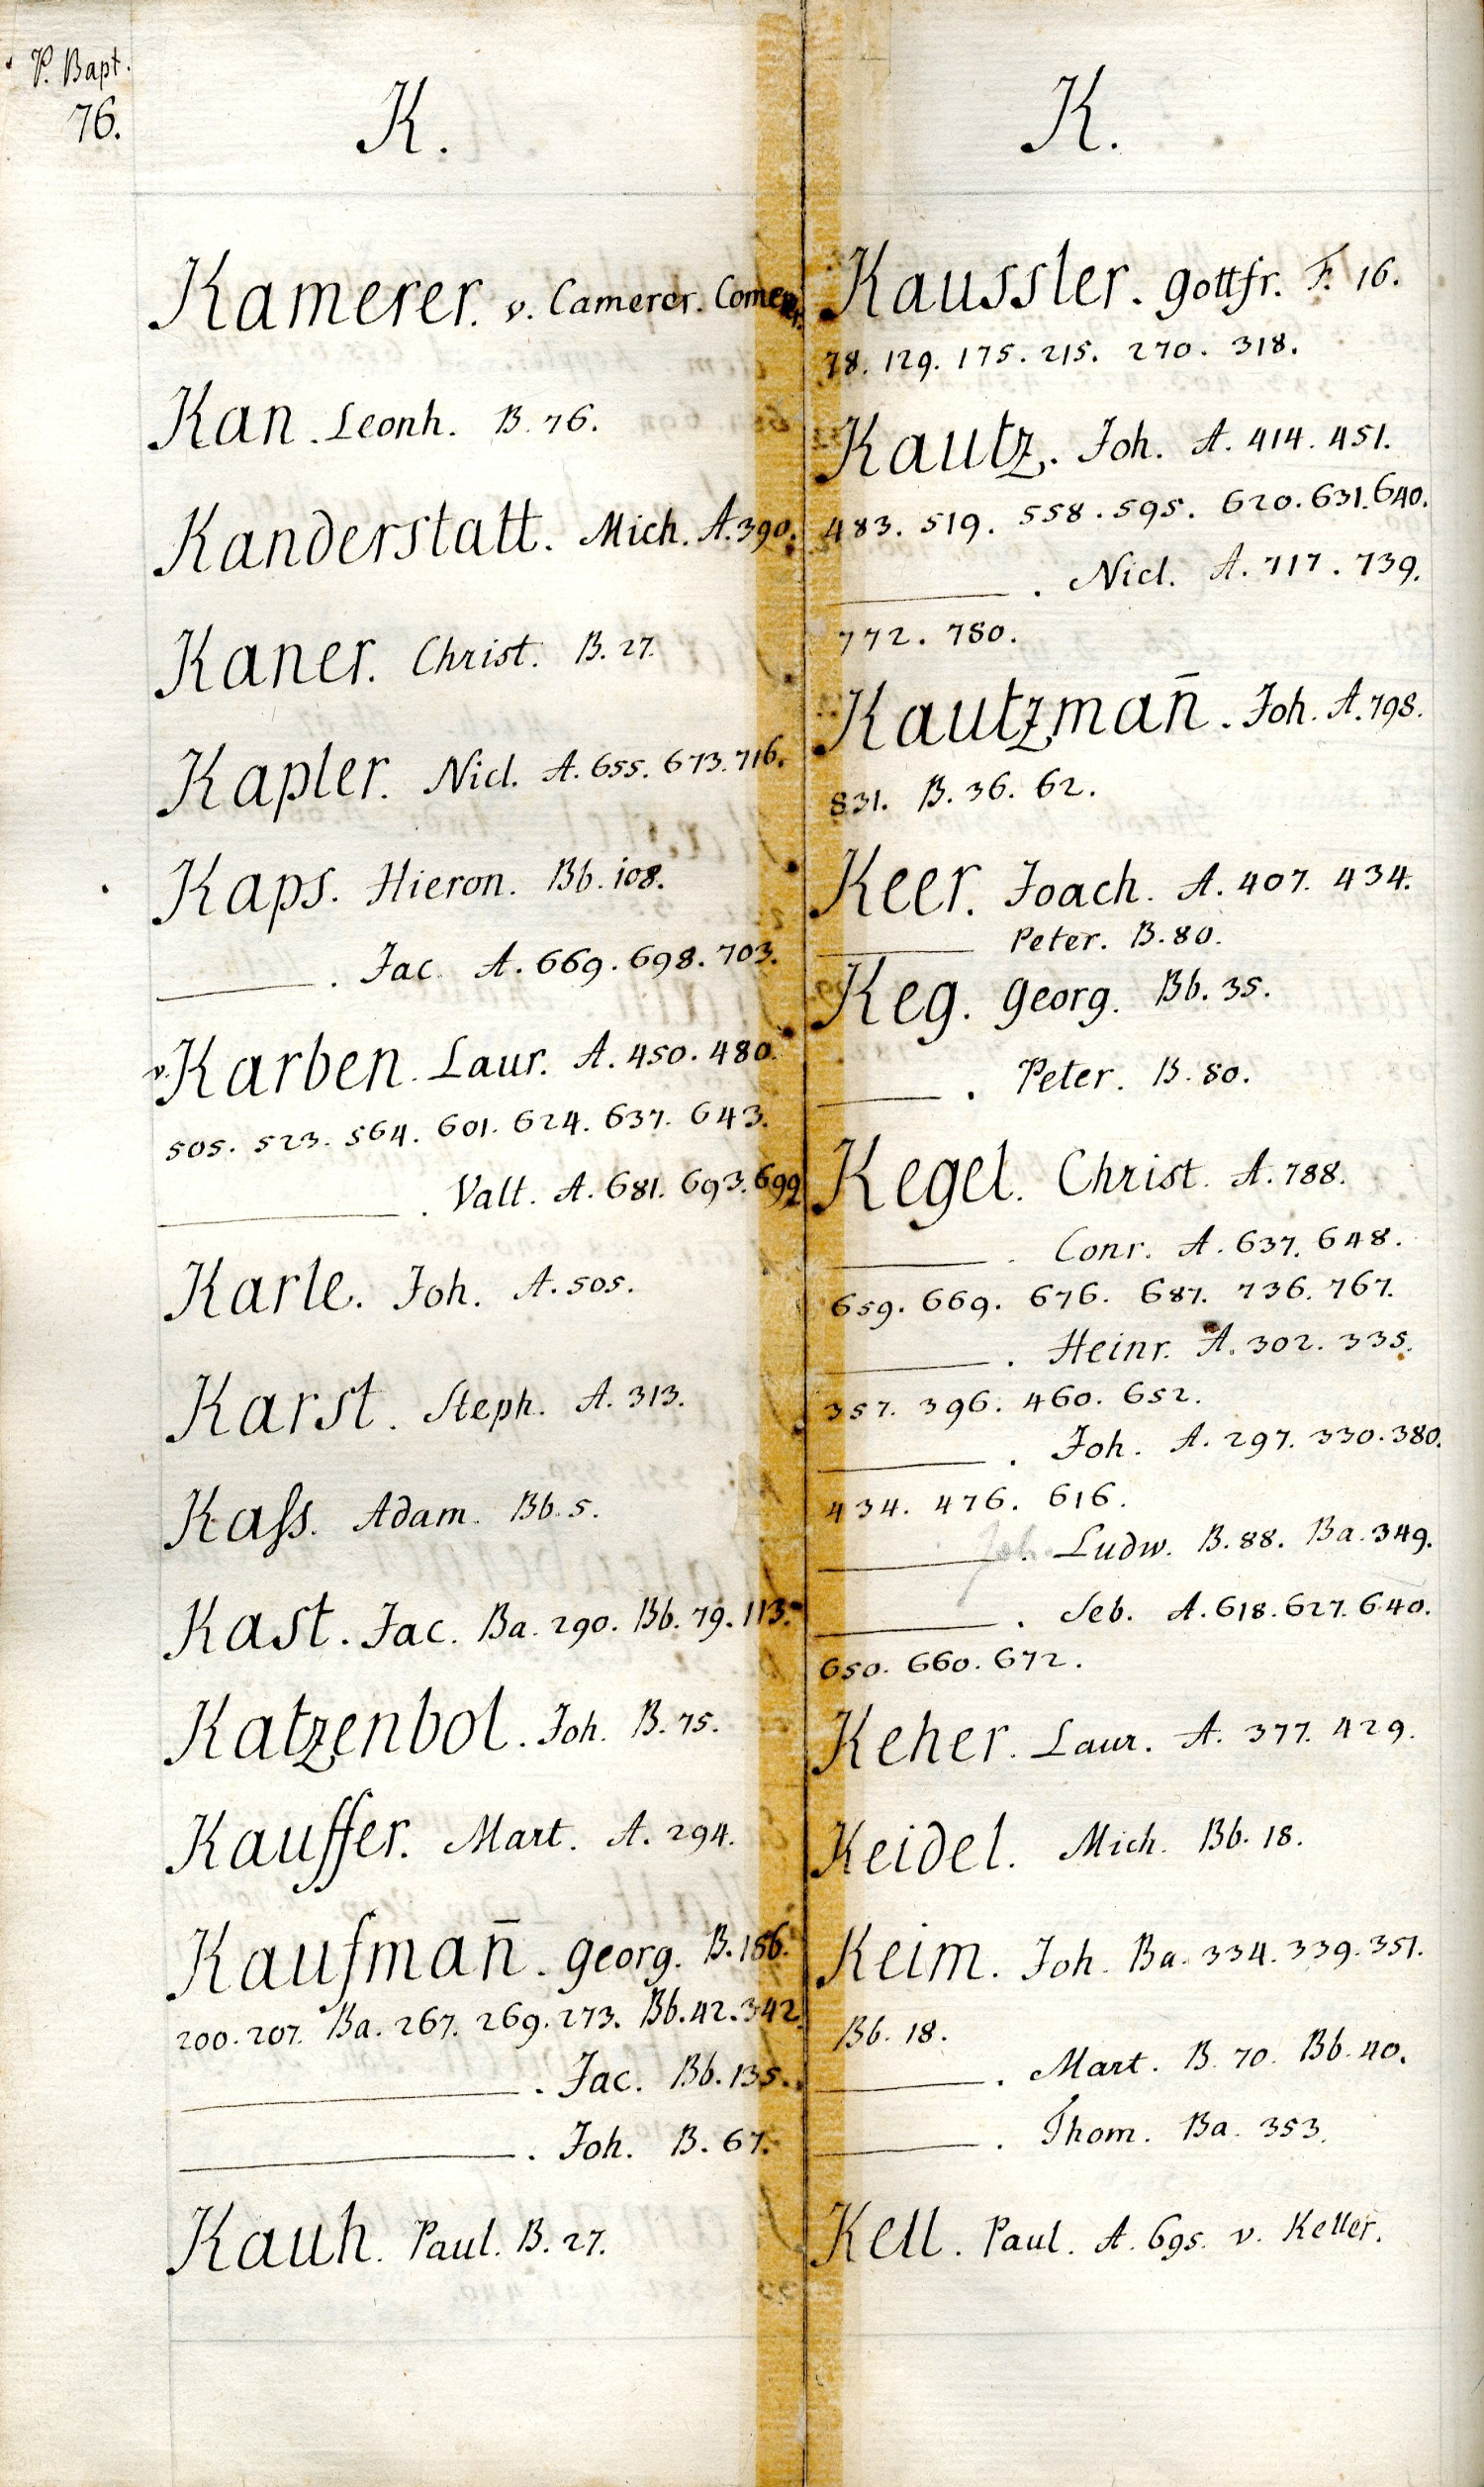 P. Bapt.
76.
K.
Kamerer. v. Camerer. Comerer.
Kan. Leonh. B. 76.
Kanderstatt. Mich. A. 390.
Kaner. Christ. B. 27.
Kapler. Nicl. A. 655. 673. 716.
Kaps. Hieron. Bb. 108.
———. Jac. A. 669. 698. 703.
v. Karben. Laur. A. 450. 480.
505. 523. 564. 601. 624. 637. 643.
———. Valt. A. 681. 693. 699
Karle. Joh. A. 505.
Karst. Steph. A. 313.
Kaſs. Adam. Bb. 5.
Kast. Jac. Ba. 290. Bb. 79. 113.
Katzenbol. Joh. B. 75.
Kauffer. Mart. A. 294.
Kaufman̄. Georg. B. 186.
200. 207. Ba. 267. 269. 273. Bb. 42. 342.
———. Jac. Bb. 135.
———. Joh. B. 67.
Kauh. Paul. B. 27.
K.
Kaussler. Gottfr. F. 16.
78. 129. 175. 215. 270. 318.
Kautz. Joh. A. 414. 451.
483. 519. 558. 595. 620. 631. 640.
———. Nicl. A. 717. 739.
772. 780.
Kautzman̄. Joh. A. 798.
831. B. 36. 62.
Keer. Joach. A. 407. 434.
——— Peter. B. 80.
Keg. Georg. Bb. 35.
———. Peter. B. 80.
Kegel. Christ. A. 788.
———. Conr. A. 637. 648.
659. 669. 676. 687. 736. 767.
———. Heinr. A. 302. 335.
357. 396. 460. 652.
———. Joh. A. 297. 330. 380.
434. 476. 616.
———. Joh. Ludw. B. 88. Ba. 349.
———. Seb. A. 618. 627. 640.
650. 660. 672.
Keher. Laur. A. 377. 429.
Keidel. Mich. Bb. 18.
Keim. Joh. Ba. 334. 339. 351.
Bb. 18.
———. Mart. B. 70. Bb. 40.
———. Thom. Ba. 353.
Kell. Paul. A. 695. v. Keller.